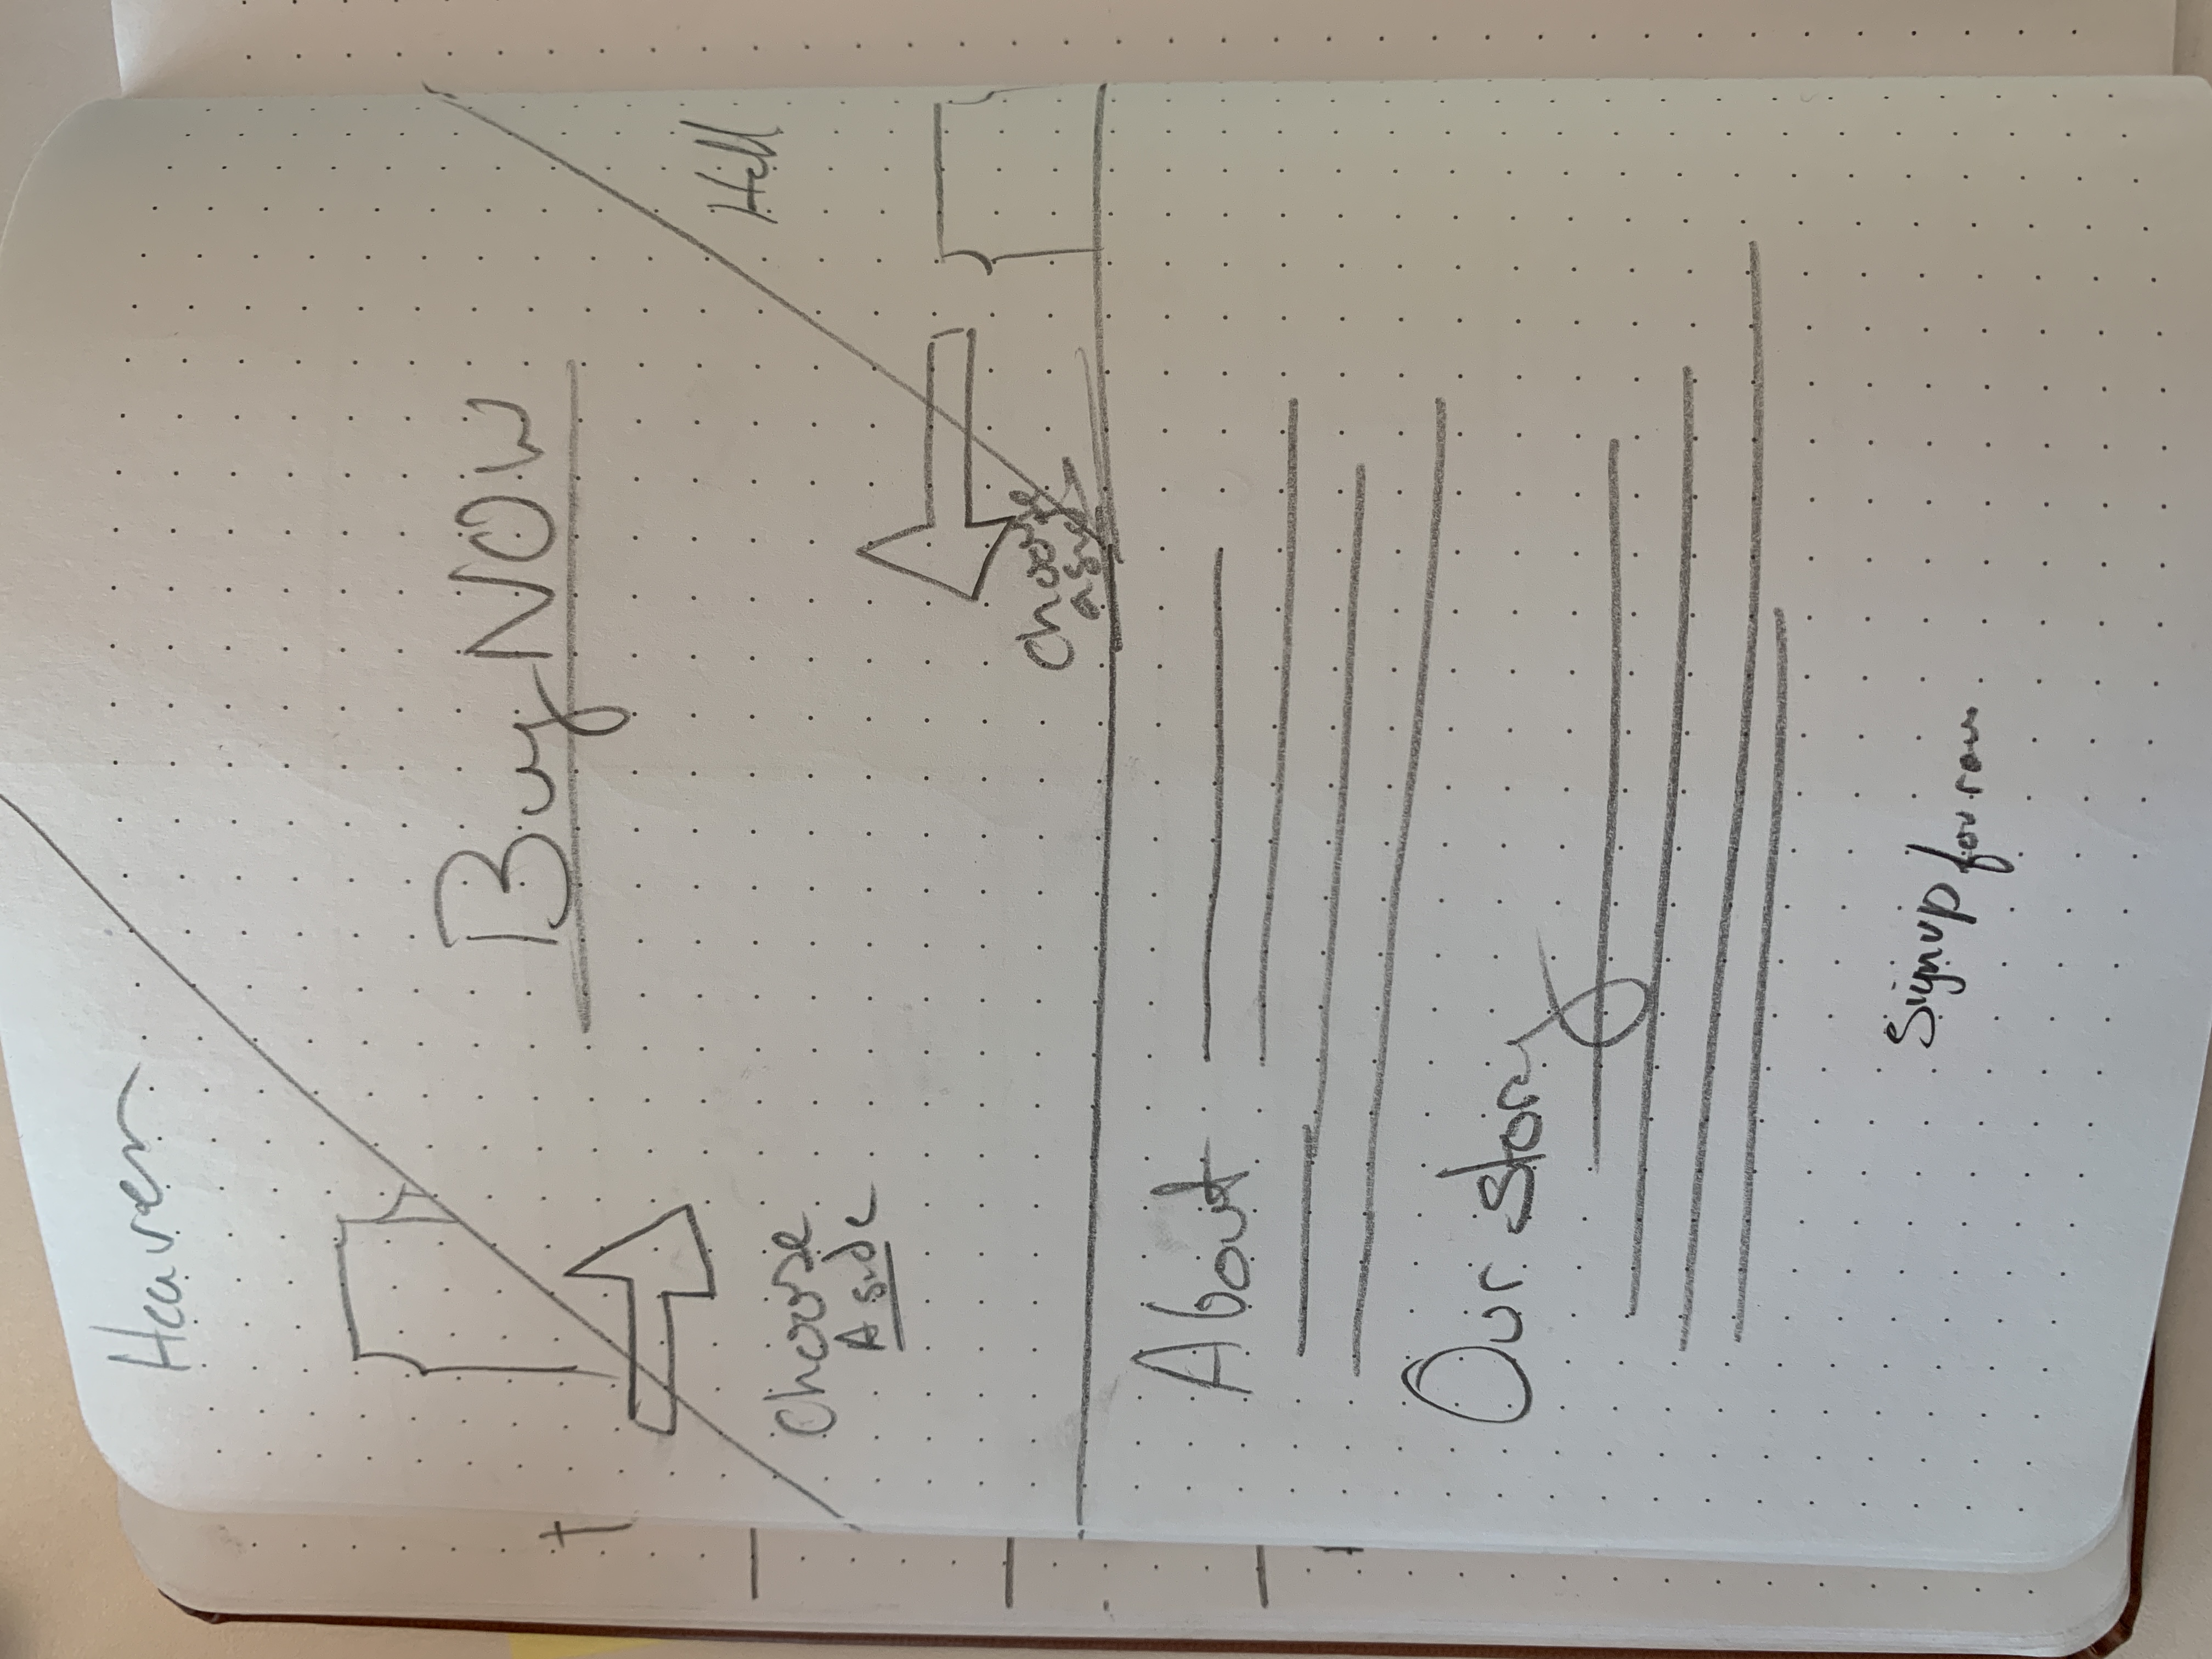 Heaven
Buy NOW
Hell
Choose
A side
Choose
a side
About
Our story
Signup for